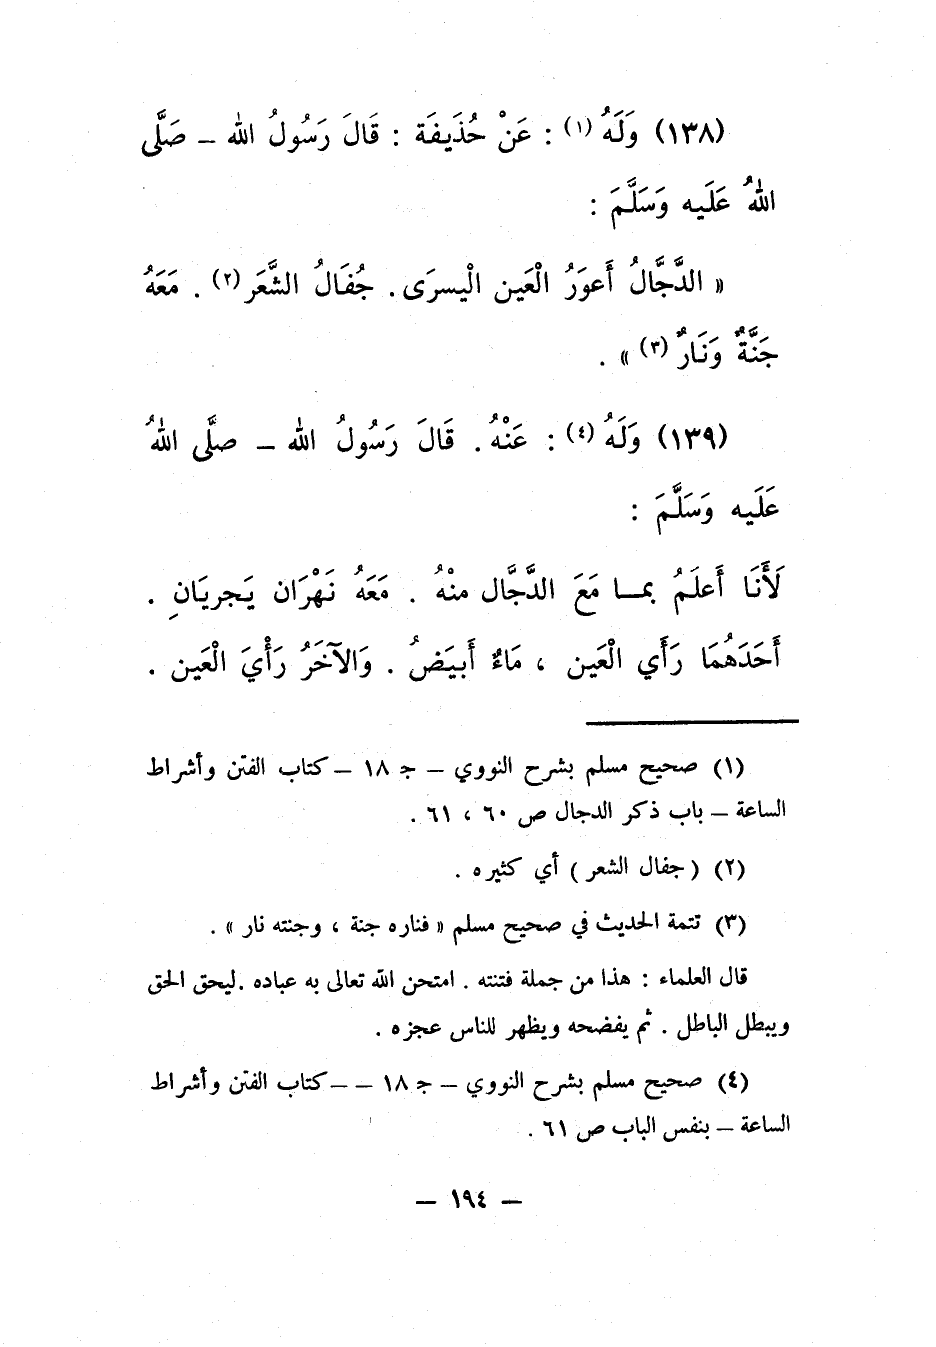 (١٣٨) وَلَهُ (١) : عَنْ حُذَيفَة : قَالَ رَسُولُ الله – صَلَّى
اللهُ عَلَيه وَسَلَّمَ :
« الدَّجَّالُ أَعوَرُ الْعَين الْيسرَى . جُفَالُ الشَّعَر (٢) . مَعَهُ
جَنَّةٌ وَنَارٌ (٣) » .
(١٣٩) وَلَهُ (٤) : عَنْهُ . قَالَ رَسُولُ الله – صلَّى اللهُ
عَلَيه وَسَلَّمَ :
لَأَنَا أَعلَمُ بمـا مَعَ الدَّجَّال منْهُ . مَعَهُ نَهْرَان يَجريَانِ .
أَحَدَهُمَا رَأي الْعَين ، مَاءٌ أَبيَضُ . وَالآخَرُ رَأْيَ الْعَين .
(١) صحيح مسلم بشرح النووي – جـ ١٨ – كتاب الفتن وأشراط
الساعة – باب ذكر الدجال ص ٦٠ ، ٦١ .
(٢) ( جفال الشعر ) أي كثيره .
(٣) تتمة الحديث في صحيح مسلم « فناره جنة ، وجنته نار » .
قال العلماء : هذا من جملة فتنته . امتحن الله تعالى به عباده .ليحق الحق
ويبطل الباطل . ثم يفضحه ويظهر للناس عجزه .
(٤) صحيح مسلم بشرح النووي – جـ ١٨ – – كتاب الفتن وأشراط
الساعة – بنفس الباب ص ٦١ .
– ١٩٤ –